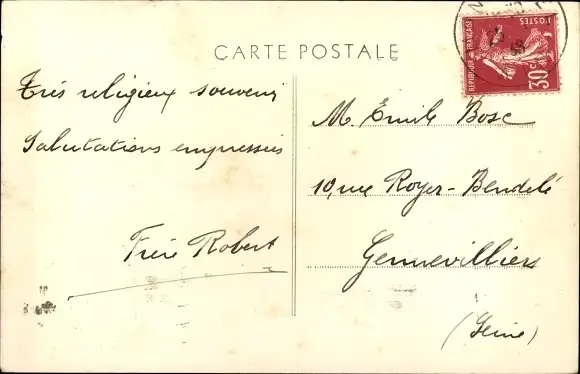 CARTE POSTALE
POSTES
REPUBLIQUE FRANÇAISE
30c
Très religieux souvenir
Salutations empressées
Frère Robert
M. Emile Bosc
10, rue Royer-Bendelé
Gennevilliers
(Seine)